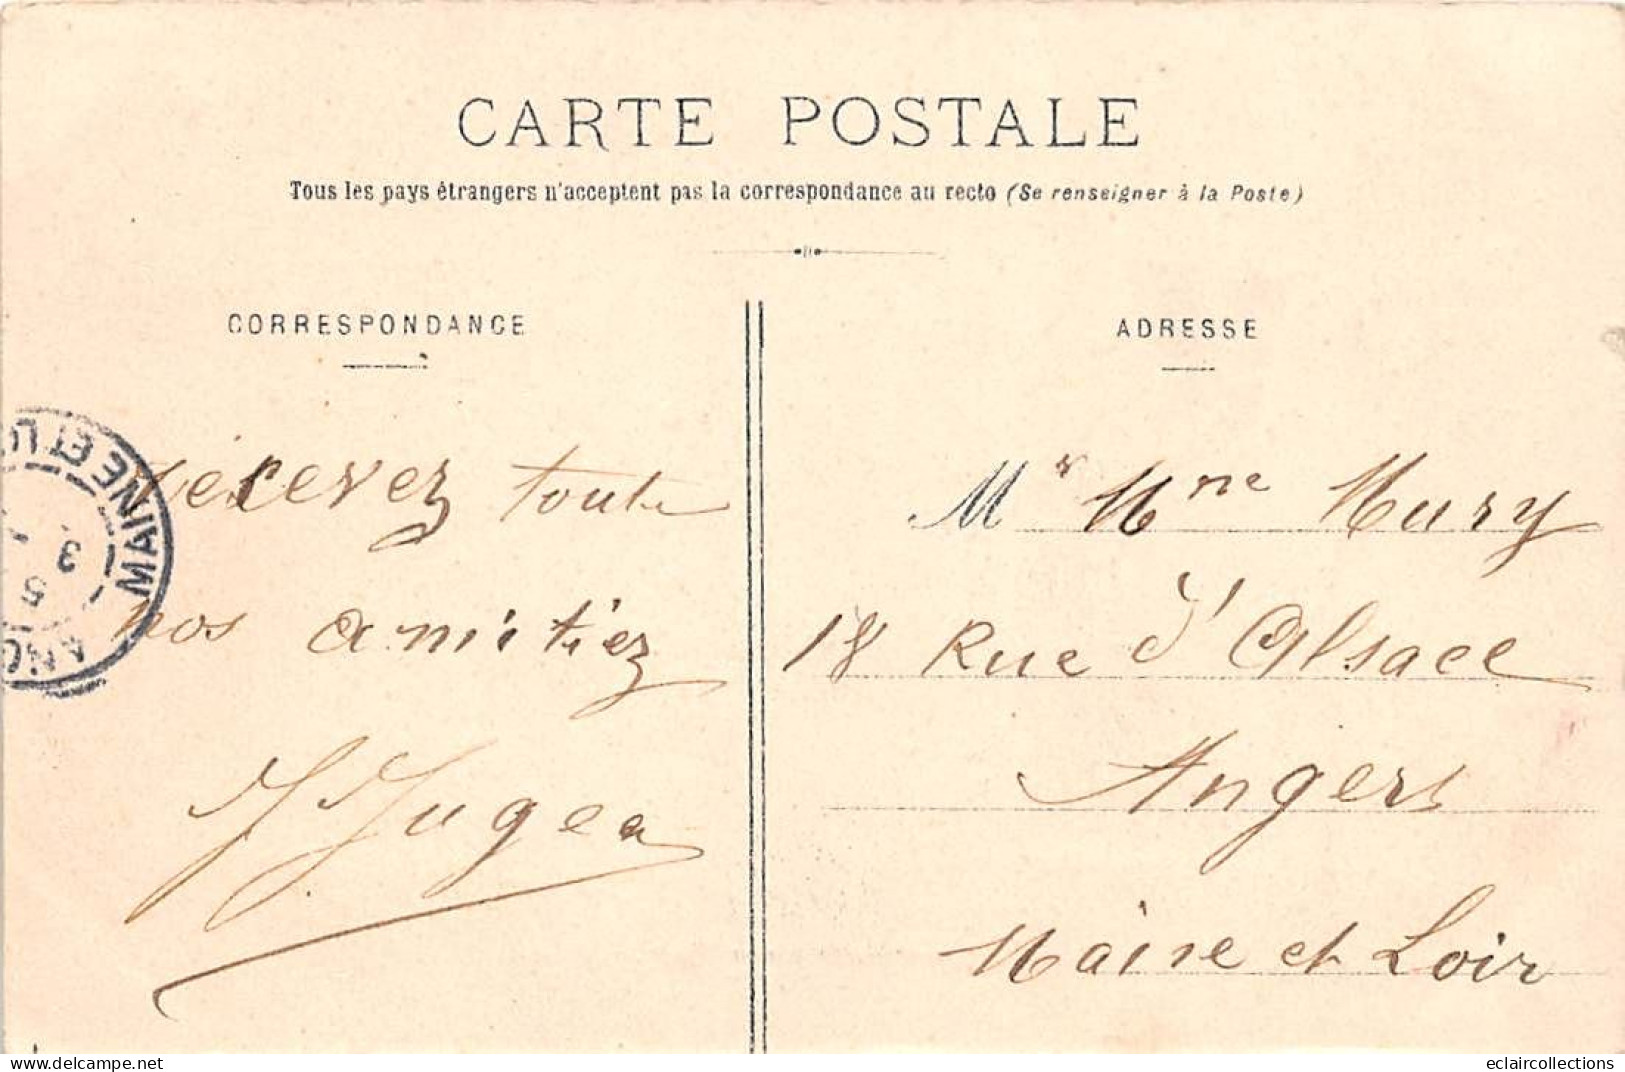 CARTE POSTALE
Tous les pays étrangers n'acceptent pas la correspondance au recto (Se renseigner à la Poste)
CORRESPONDANCE
recevez toute
nos amitiez
J Jugea
MAINE ET L
3
5
ANG
ADRESSE
Mr Mme Mury
18 Rue d'Alsace
Angers
Maine et Loir
eclaircollections
www.delcampe.net